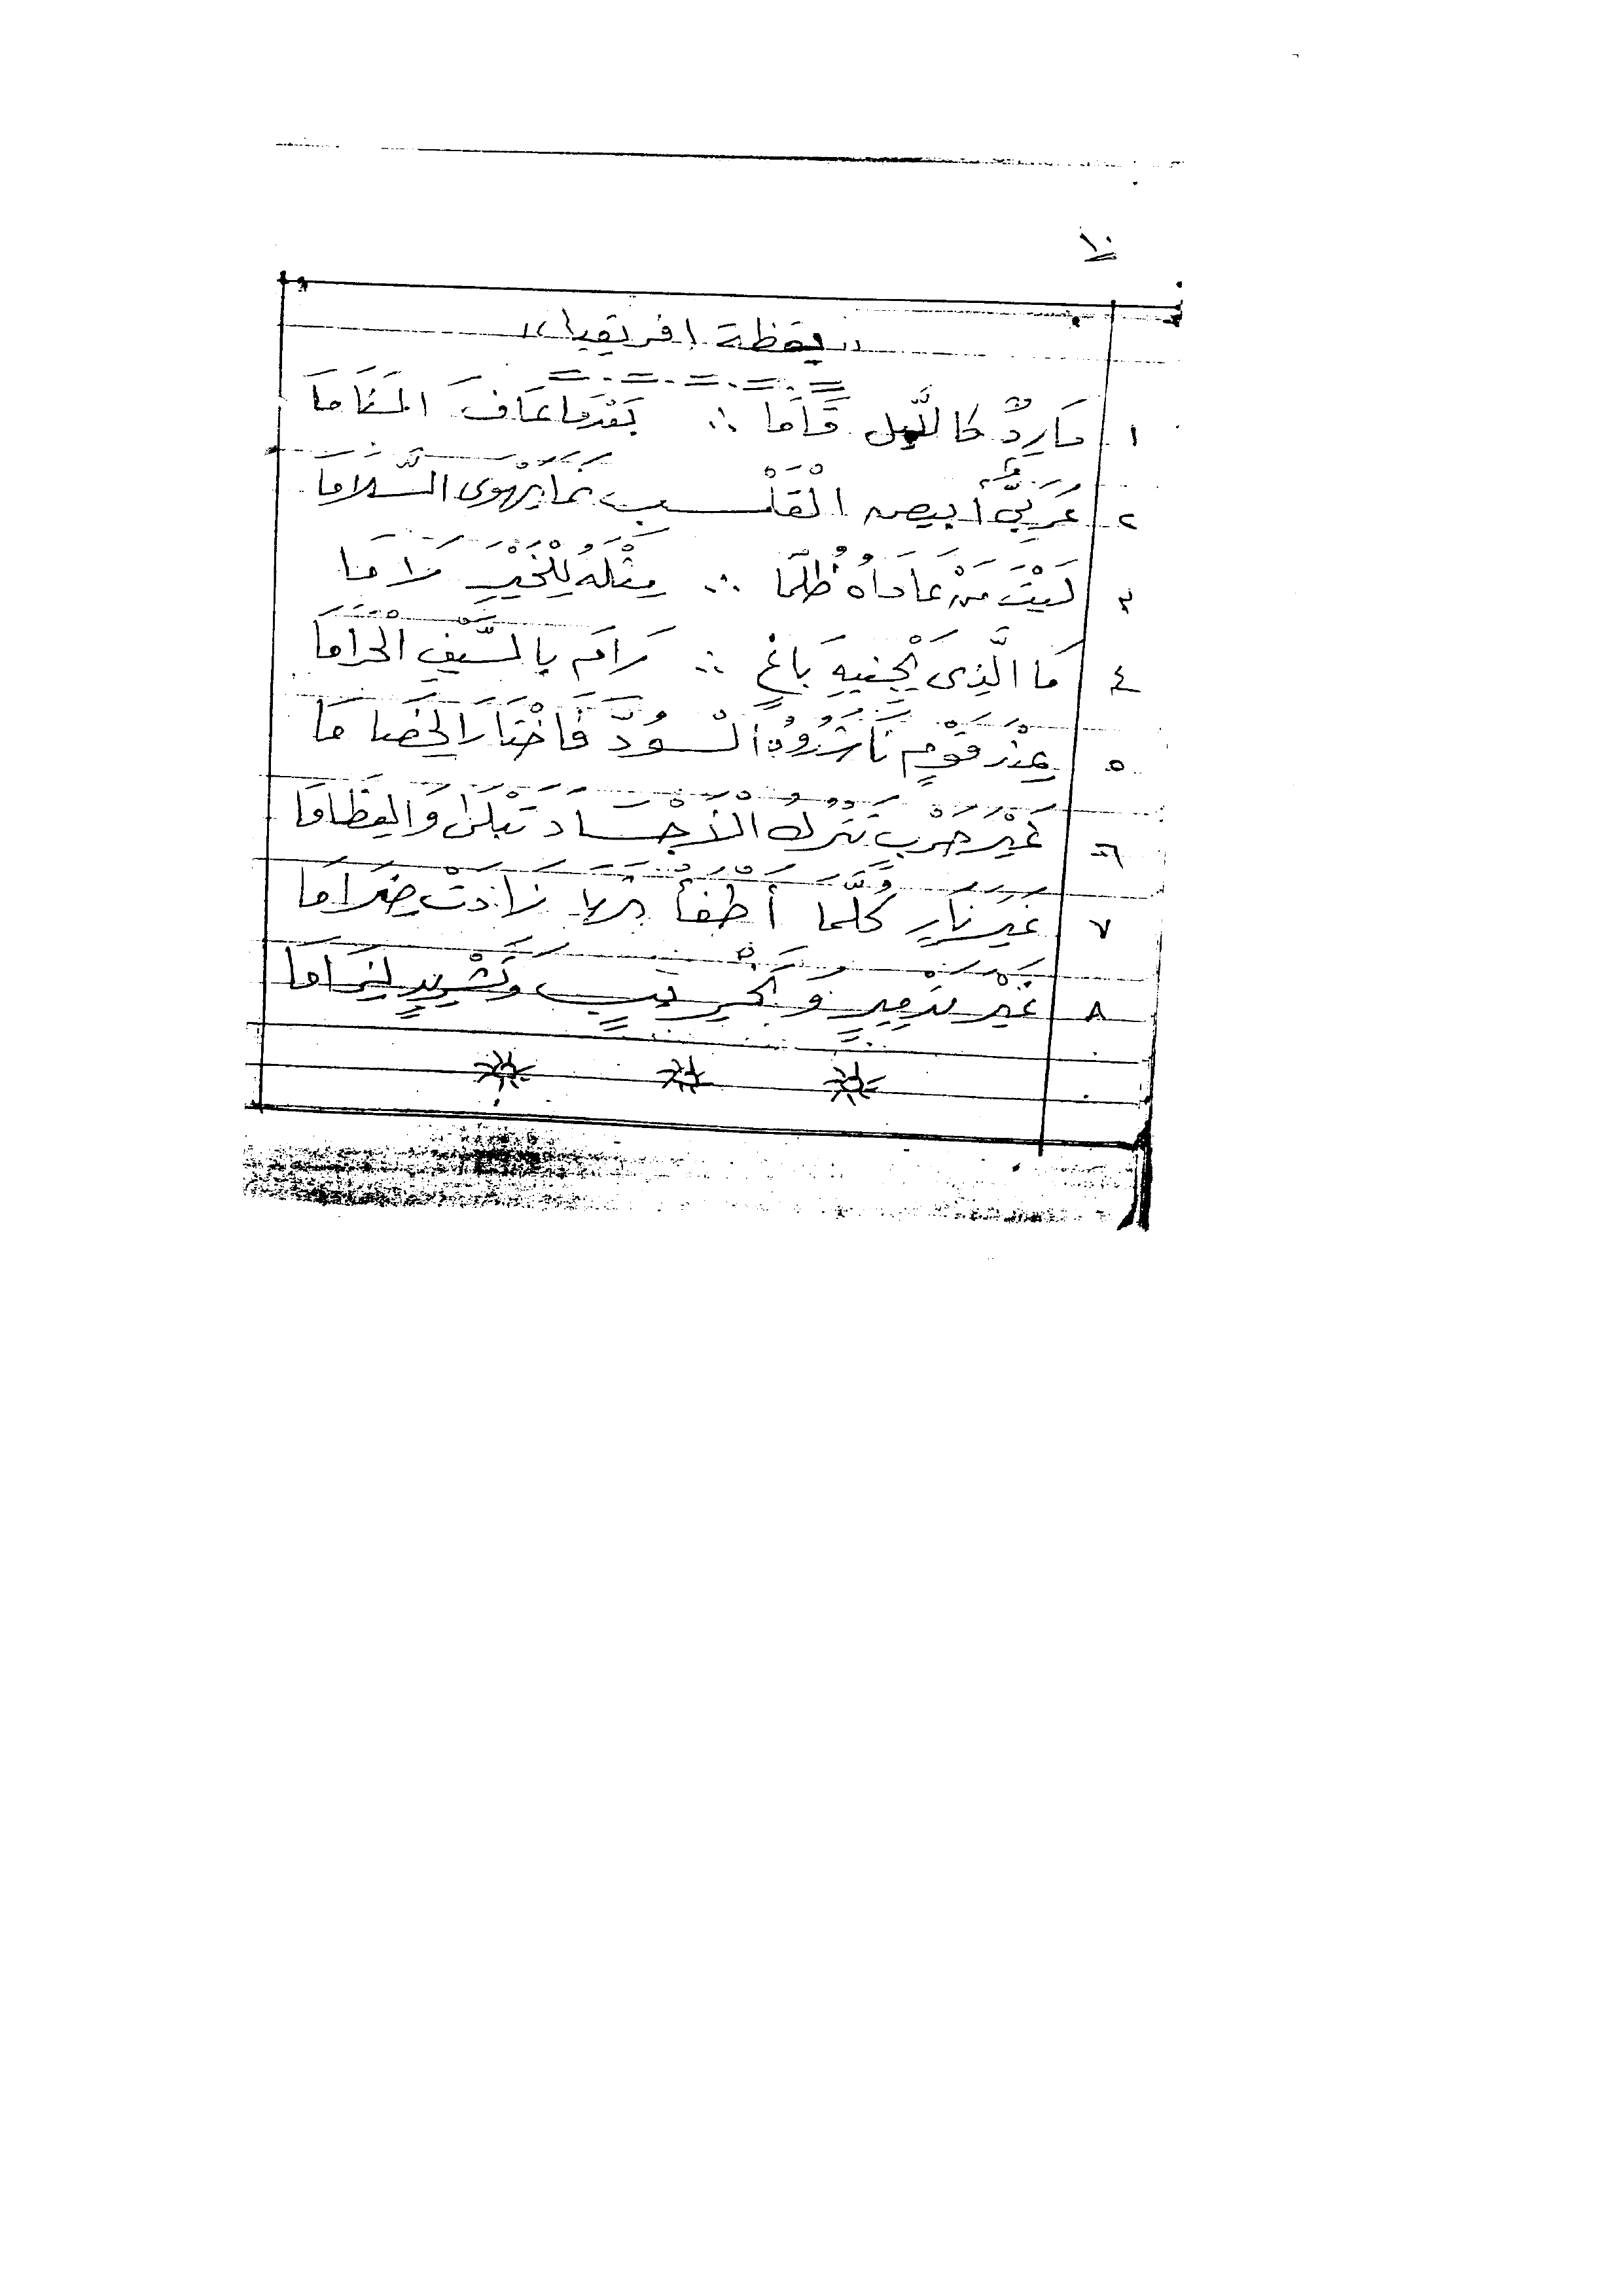 ١٠
"يقظة إفريقيا"
١ مَارِدٌ كاللَّيل قَامَا ∴ بَعْدَما عَافَ المَنَامَا
٢ عَرَبِيٌّ أبيض الْقَلْـــب كَمَا يَهْوَى السَّلامَا
٣ لَيْتَ مَنْ عَادَاهُ ظُلْمًا ∴ مِثْلَهُ لِلْخَيْرِ رَامَا
٤ مَا الَّذِى يَجْنِيهِ بَاغٍ ∴ رَامَ بِالسَّيْفِ الْحَرَامَا
٥ عِنْدَ قَوْمٍ نَاشَدُوهُ الْــوُدَّ فَاخْتَارَ الخِصَامَا
٦ غَيْرَ حَرْبٍ تَتْرُكُ الْأَجْسَادَ تَبْلَى وَالعِظَامَا
٧ غَيْرَ نَارٍ كُلَّمَا أَطْفَأْتَهَا زَادَتْ ضِرَامَا
٨ غَيْرَ تَدْمِيرٍ وَتَخْرِيبٍ وَتَشْرِيدٍ